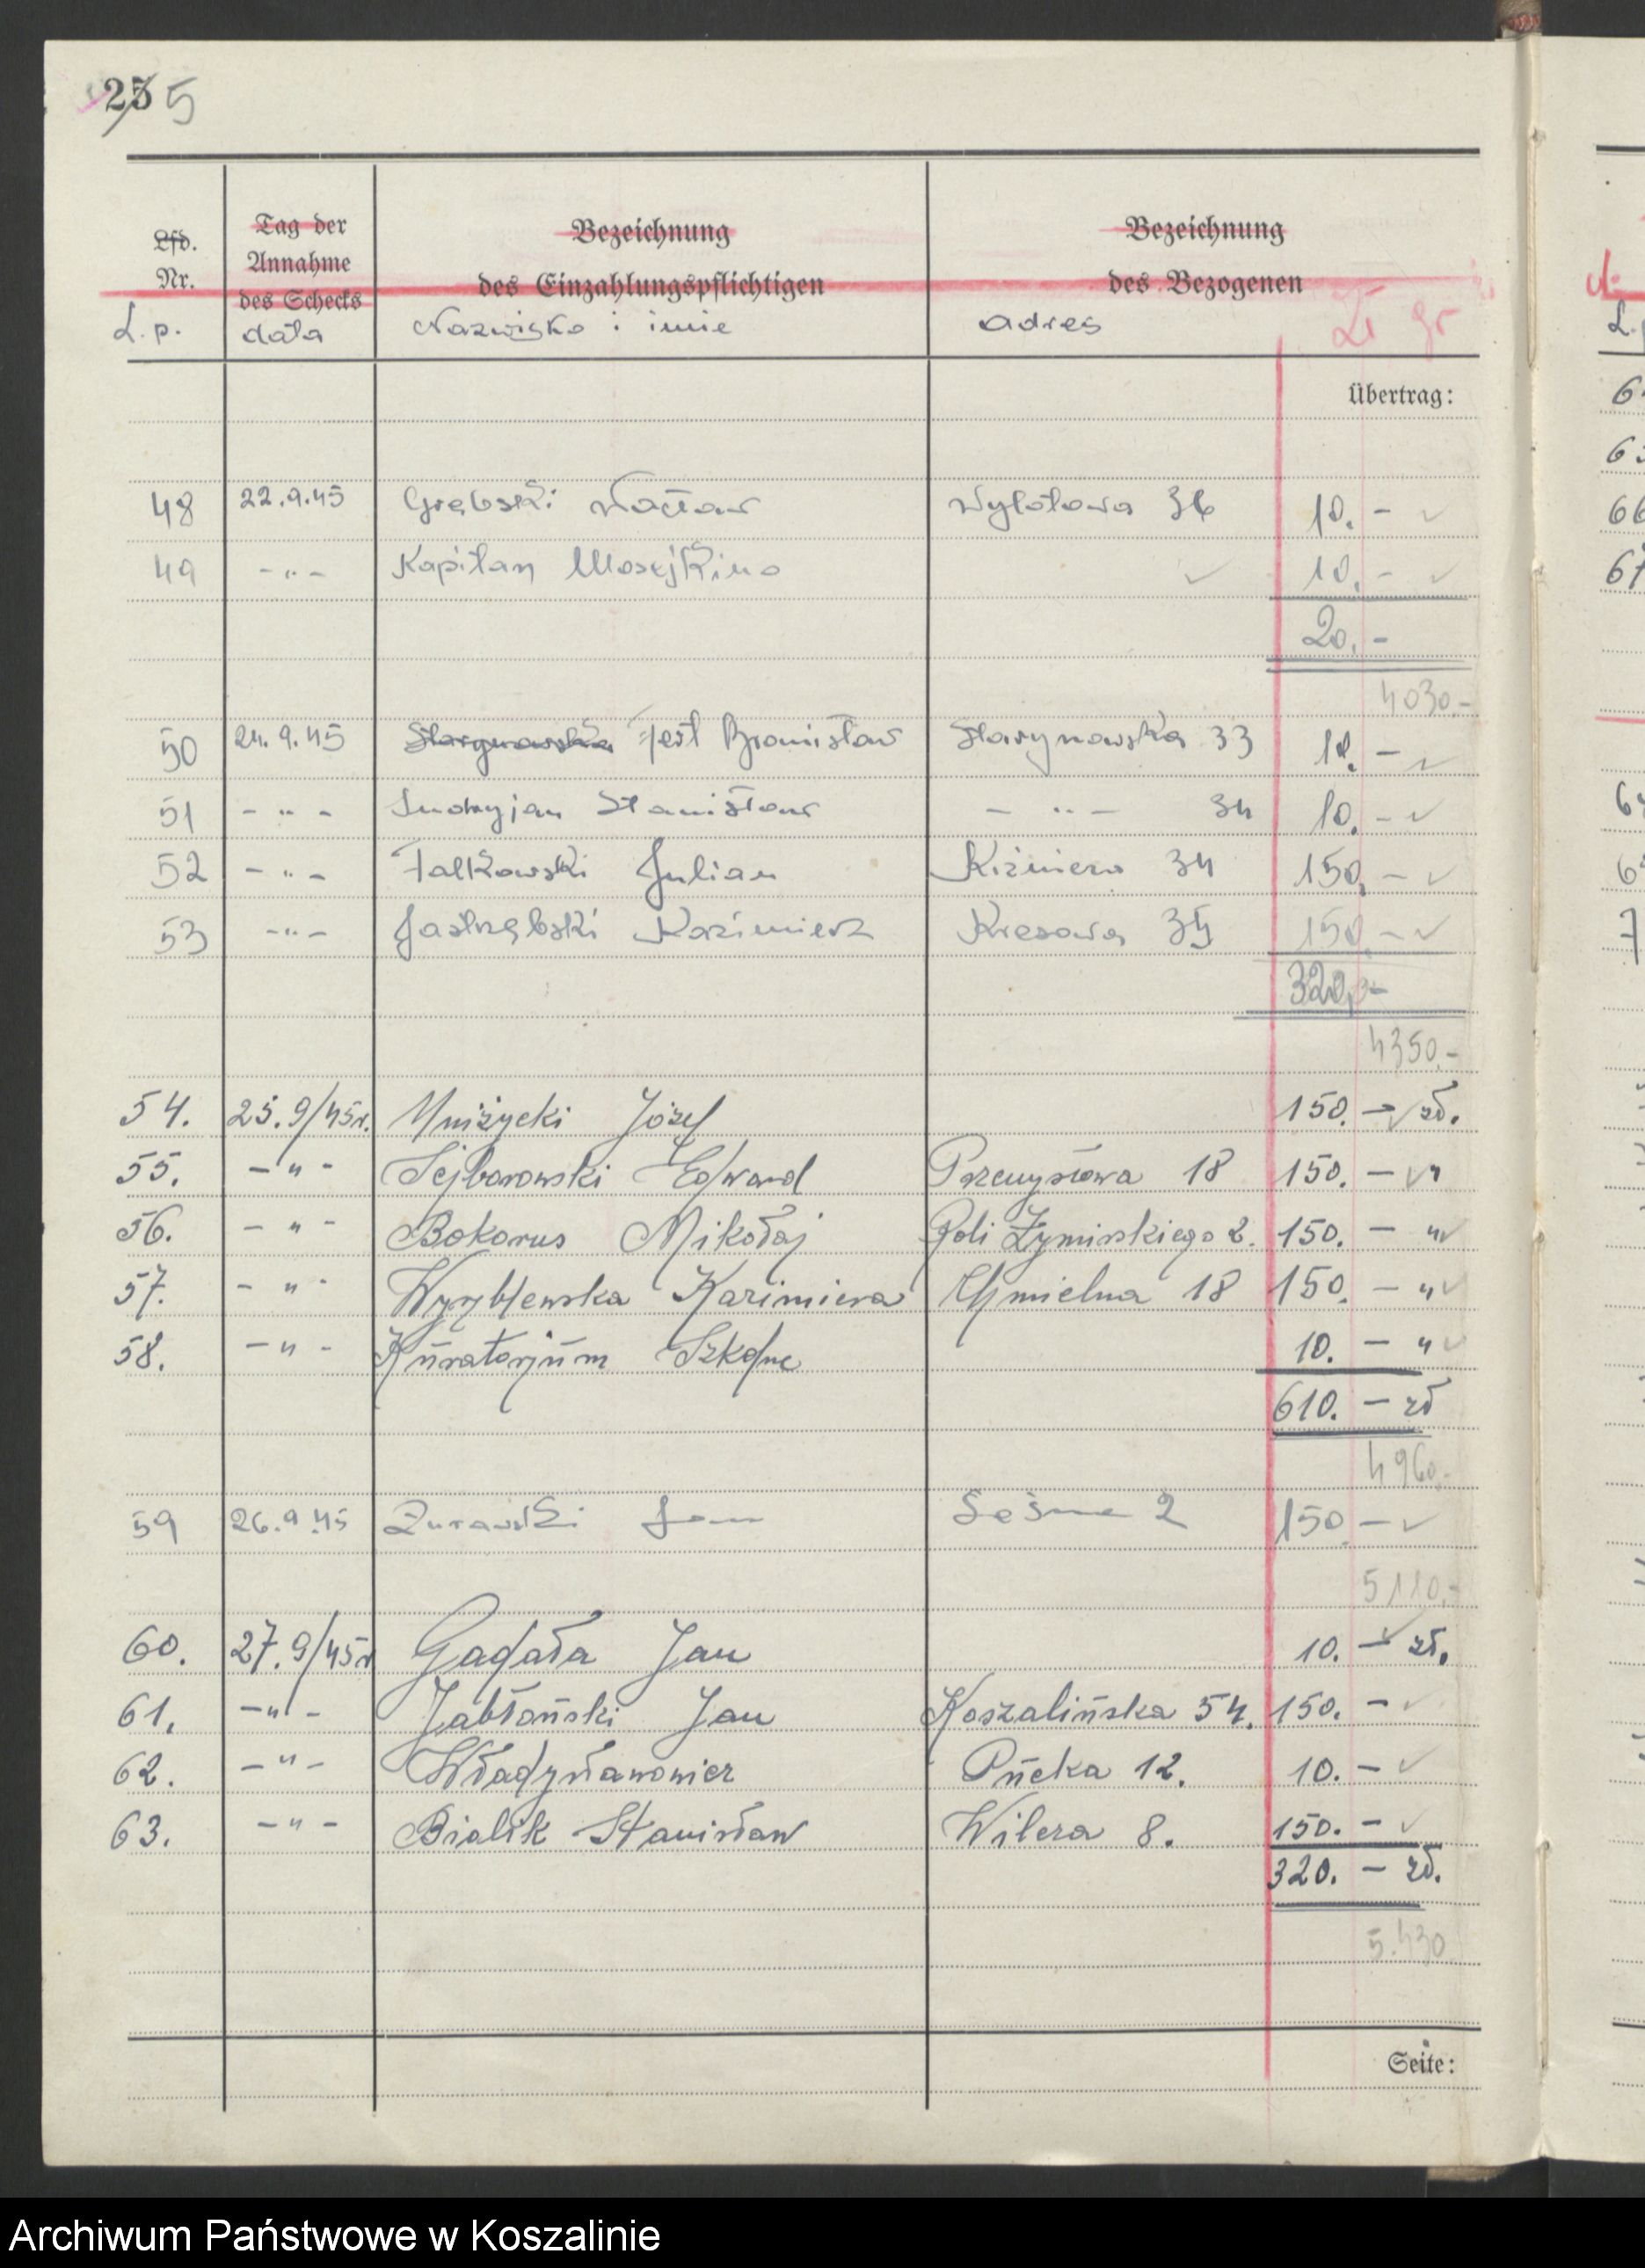 235
Lfd. Nr. Tag der Annahme des Schecks Bezeichnung des Einzahlungspflichtigen Bezeichnung des Bezogenen
L.p. data Nazwisko i imie adres Zł gr
Übertrag:
48 22.9.45 Grębski Wacław Wylotowa 36 10.-
49 -"- Kapitan 10.-
20.-
4030.-
50 24.9.45 Bronisław 33 10.-
51 -"- Stanisław -"- 34 10.-
52 -"- Falkowski Julian 34 150.-
53 -"- Jastrzębski Kazimierz Kresowa 35 150.-
320.-
4350.-
54. 25.9/45r. Uniżycki Józef 150.- zł.
55. -"- Sejborowski Edward Przemysłowa 18 150.- "
56. -"- Bokorus Mikołaj Roli Żymirskiego 2. 150.- "
57. -"- Kazimiera Chmielna 18 150.- "
58. -"- Kuratorjum Szkolne 10.- "
610.- zł
4960.-
59 26.9.45 Żurawski Jan Leśna 2 150.-
5110.-
60. 27.9/45r Gagała Jan 10.- zł.
61. -"- Jabłoński Jan Koszalińska 54. 150.-
62. -"- Pucka 12. 10.-
63. -"- Bialik Stanisław Wilcza 8. 150.-
320.- zł.
5.430
Seite:
Archiwum Państwowe w Koszalinie